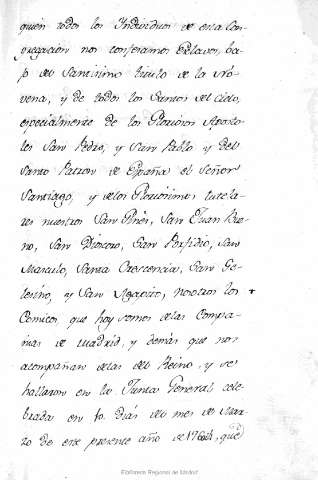 quien todos los Individuos de esta Con-
gregacion nos confesamos Esclavos, ba-
jo del Santisimo titulo de la No-
vena, y de todos los Santos del cielo,
especialmente de los Gloriosos Aposto-
les San Pedro, y San Pablo y del
Santo Patron de España el Señor
Santiago, y de los Gloriosimos tutela-
res nuestros San Gines, San Juan Bue-
no, San Dioscoro, San Porfidio, San
Marcelo, Santa Crescencia, San Ge-
lasino, y San Agapito, nosotros los +
Comicos, que hoy somos de las Compa-
ñias de Madrid, y demás que nos
acompañan de las del Reino, y se
hallaron en la Junta General cele-
brada en 10 dias del mes de Mar-
zo de este presente año de que
Biblioteca Regional de Madrid